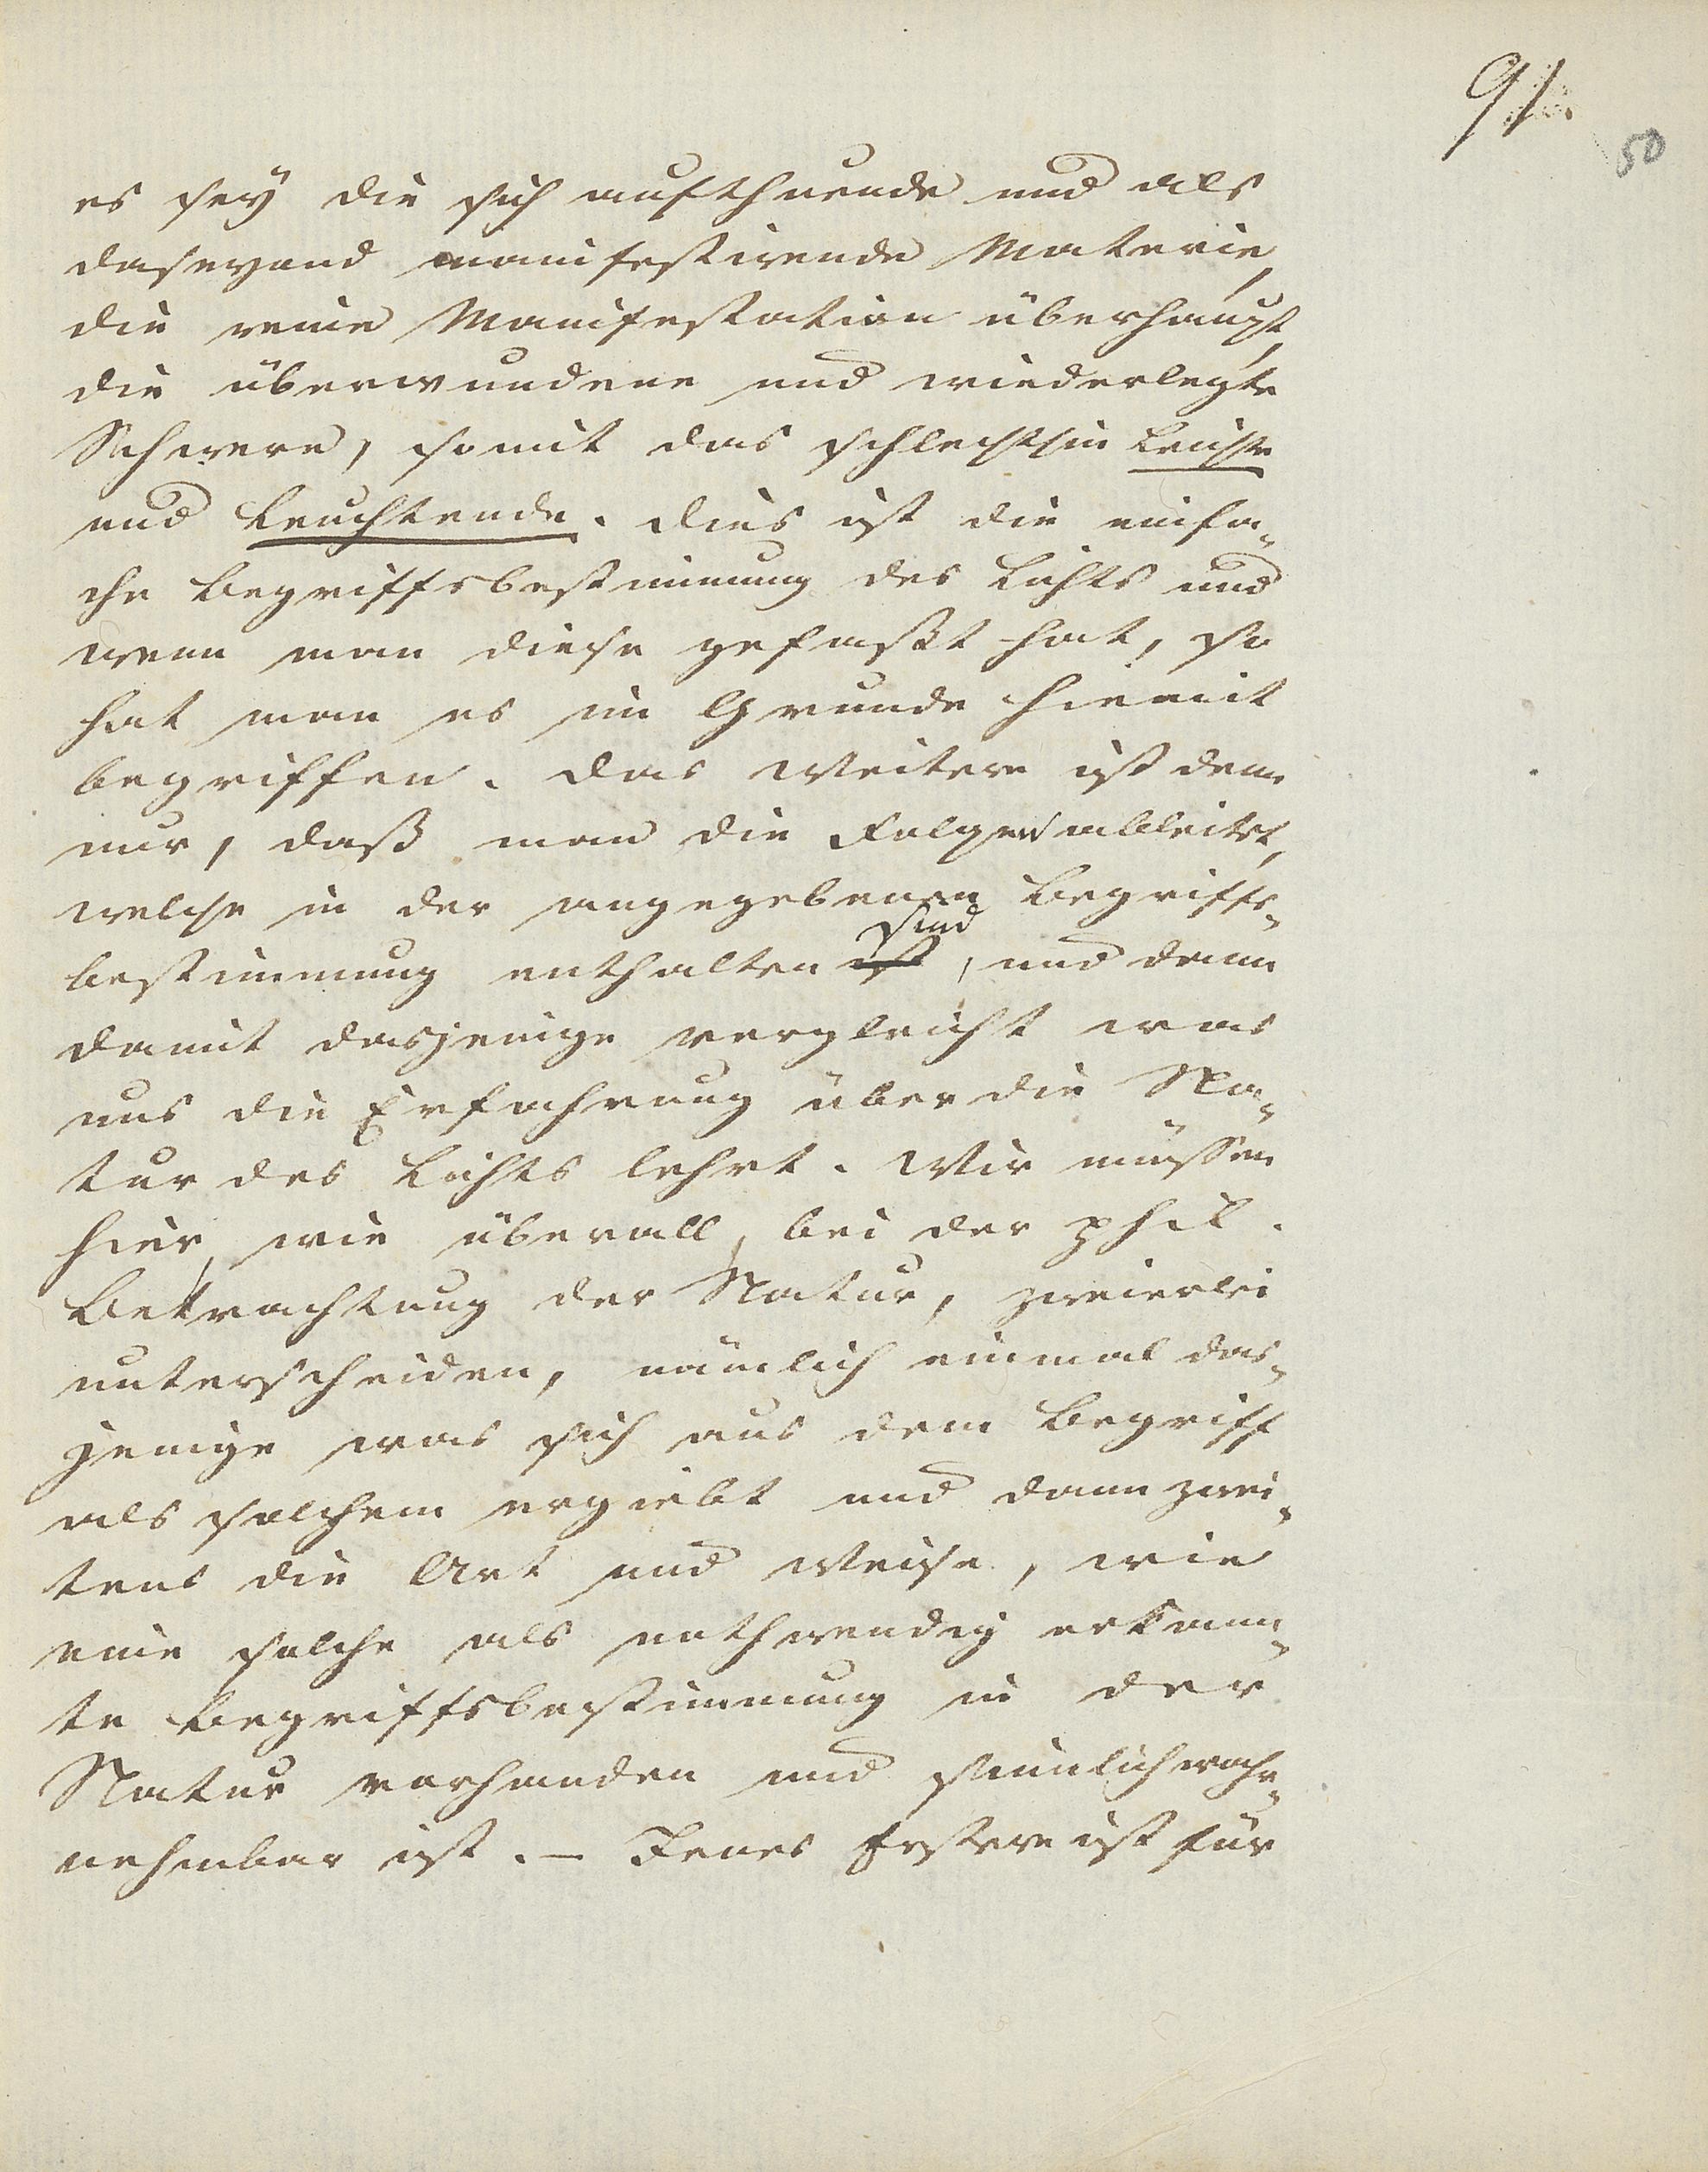 91.
50
es sey die sich aufthuende und als
daseyend manifestirende Materie,
die reine Manifestation überhaupt,
die überwundene und wiederlegte
Schwere, somit das schlechthin Leichte
und Leuchtende. Dies ist die einfa-
che Begriffsbestimmung des Lichts und
wenn man diese gefaßt hat, so
hat man es im Grunde hiemit
begriffen. Das Weitere ist dann
nur, daß man die Folgen ableitet,
welche in der angegebenen Begriffs-
sind
bestimmung enthalten ist, und dann
damit dasjenige vergleicht was
uns die Erfahrung über die Na-
tur des Lichts lehrt. Wir müssen
hier, wie überall, bei der phil.
Betrachtung der Natur, zweierlei
unterscheiden, nämlich einmal das-
jenige was sich aus dem Begriff
als solchem ergiebt und dann zwei-
tens die Art und Weise, wie
eine solche als nothwendig erkann-
te Begriffsbestimmung in der
Natur vorhanden und sinnlich wahr-
nehmbar ist. – Jenes Erstere ist für